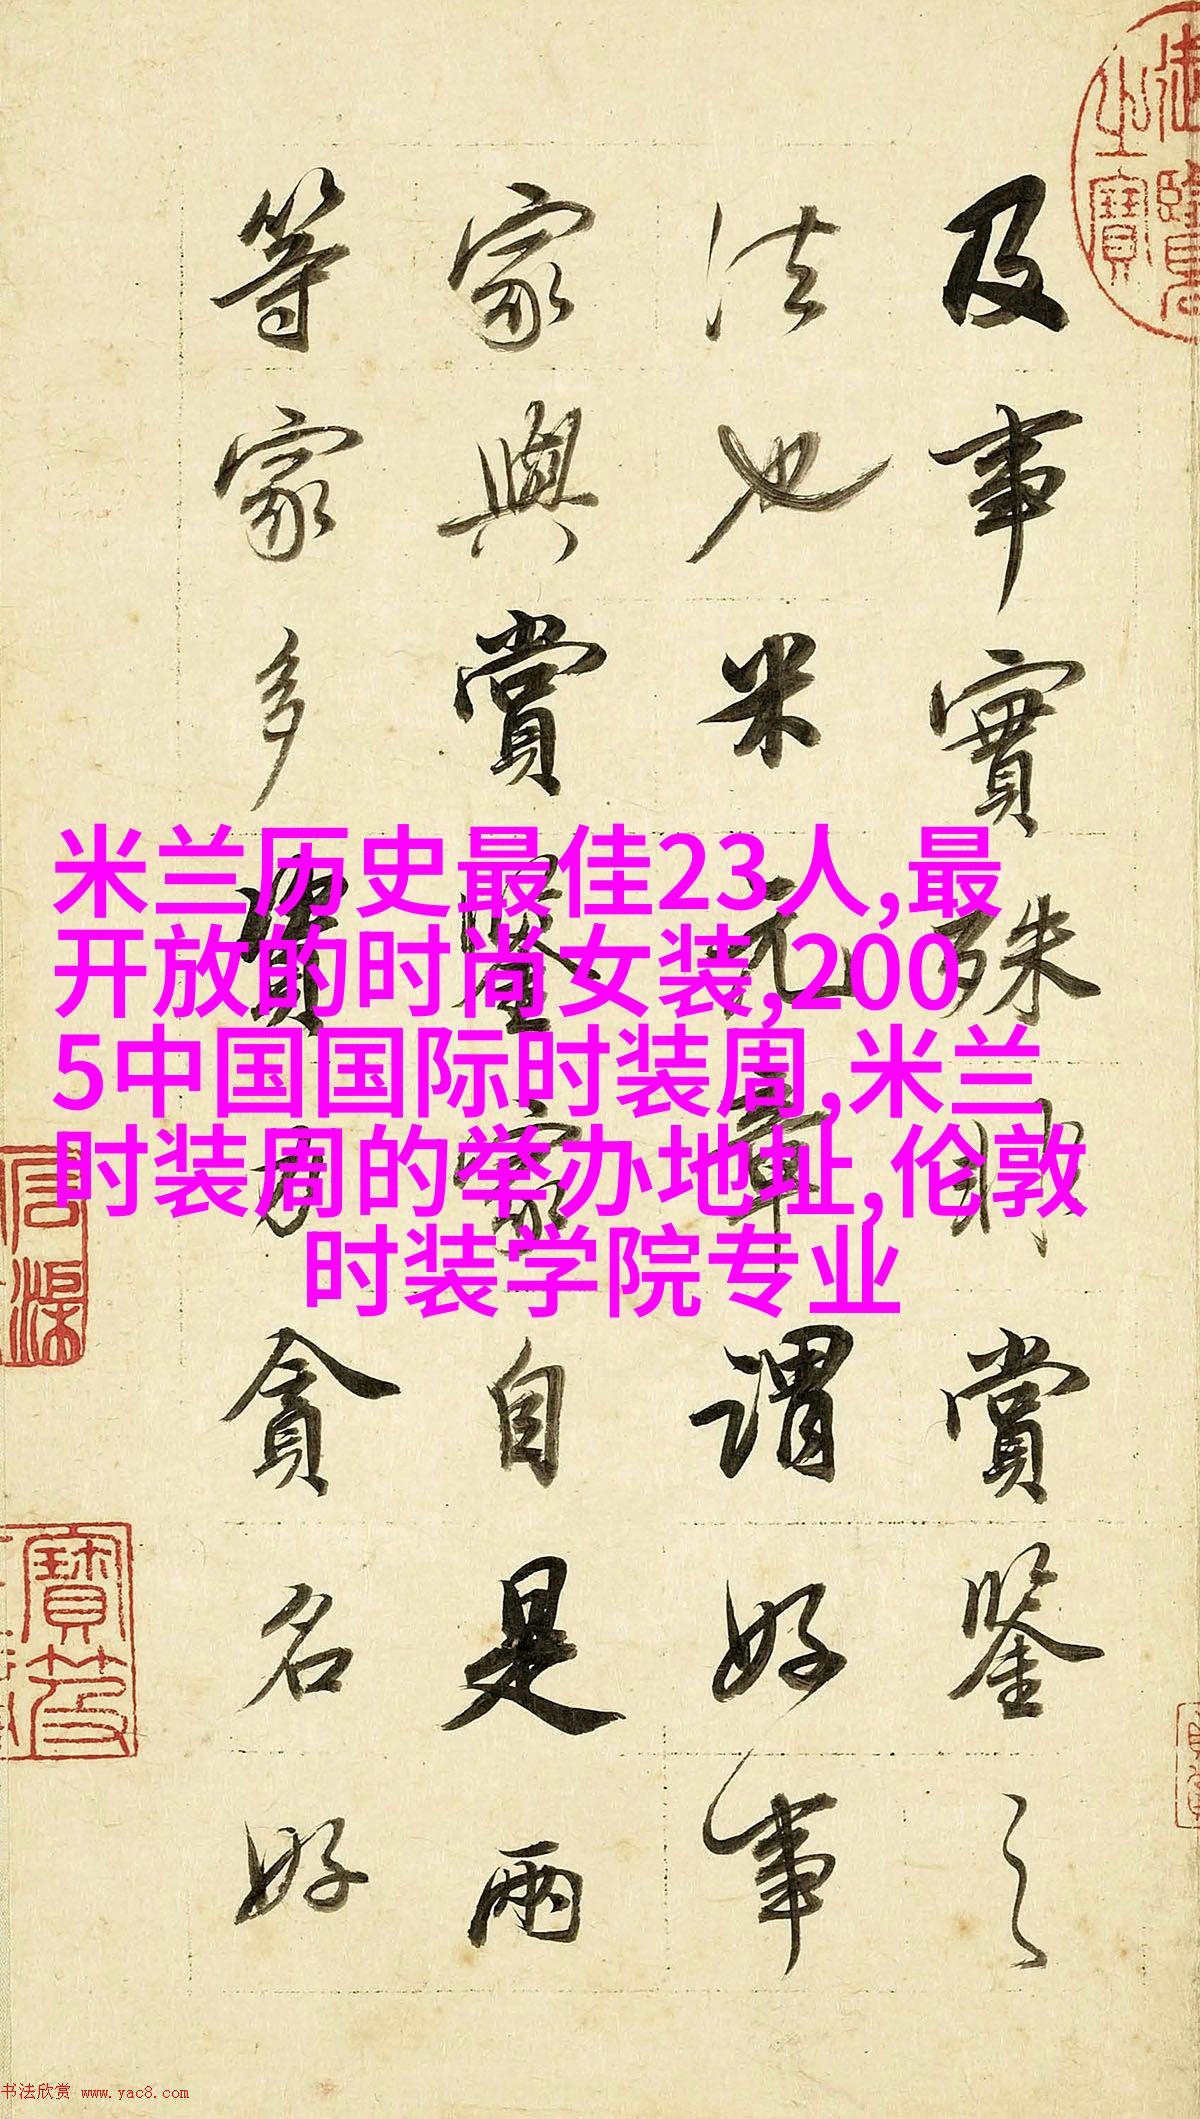 及事實殊非賞鑒之
法也米元章謂好事
家與賞鑒家自是兩
等家多資力貪名好
米兰历史最佳23人,最
开放的时尚女装,200
5中国国际时装周,米兰
时装周的举办地址,伦敦
时装学院专业
书法欣赏 www.yac8.com